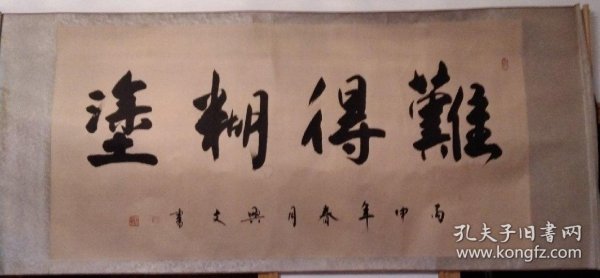 難得糊塗
丙申年春月興文書
孔夫子旧书网
www.kongfz.com